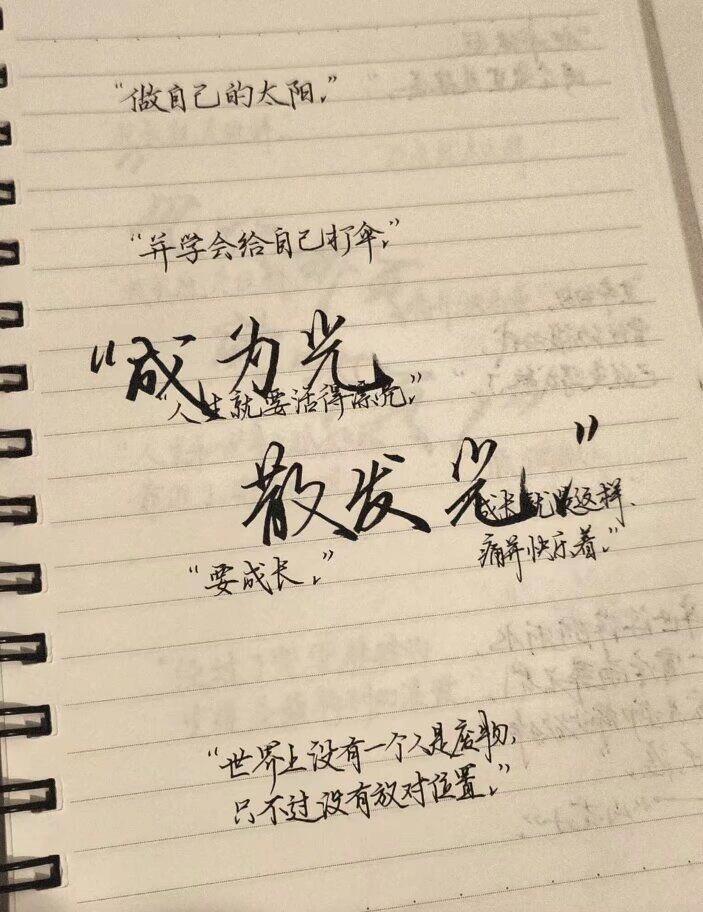 “做自己的太阳,”
“并学会给自己打伞,”
“成为光
“人生就要活得漂亮,”
散发光,”
成长就是这样、
痛并快乐着,”
“要成长,”
“世界上没有一个人是废物,
只不过没有放对位置,”